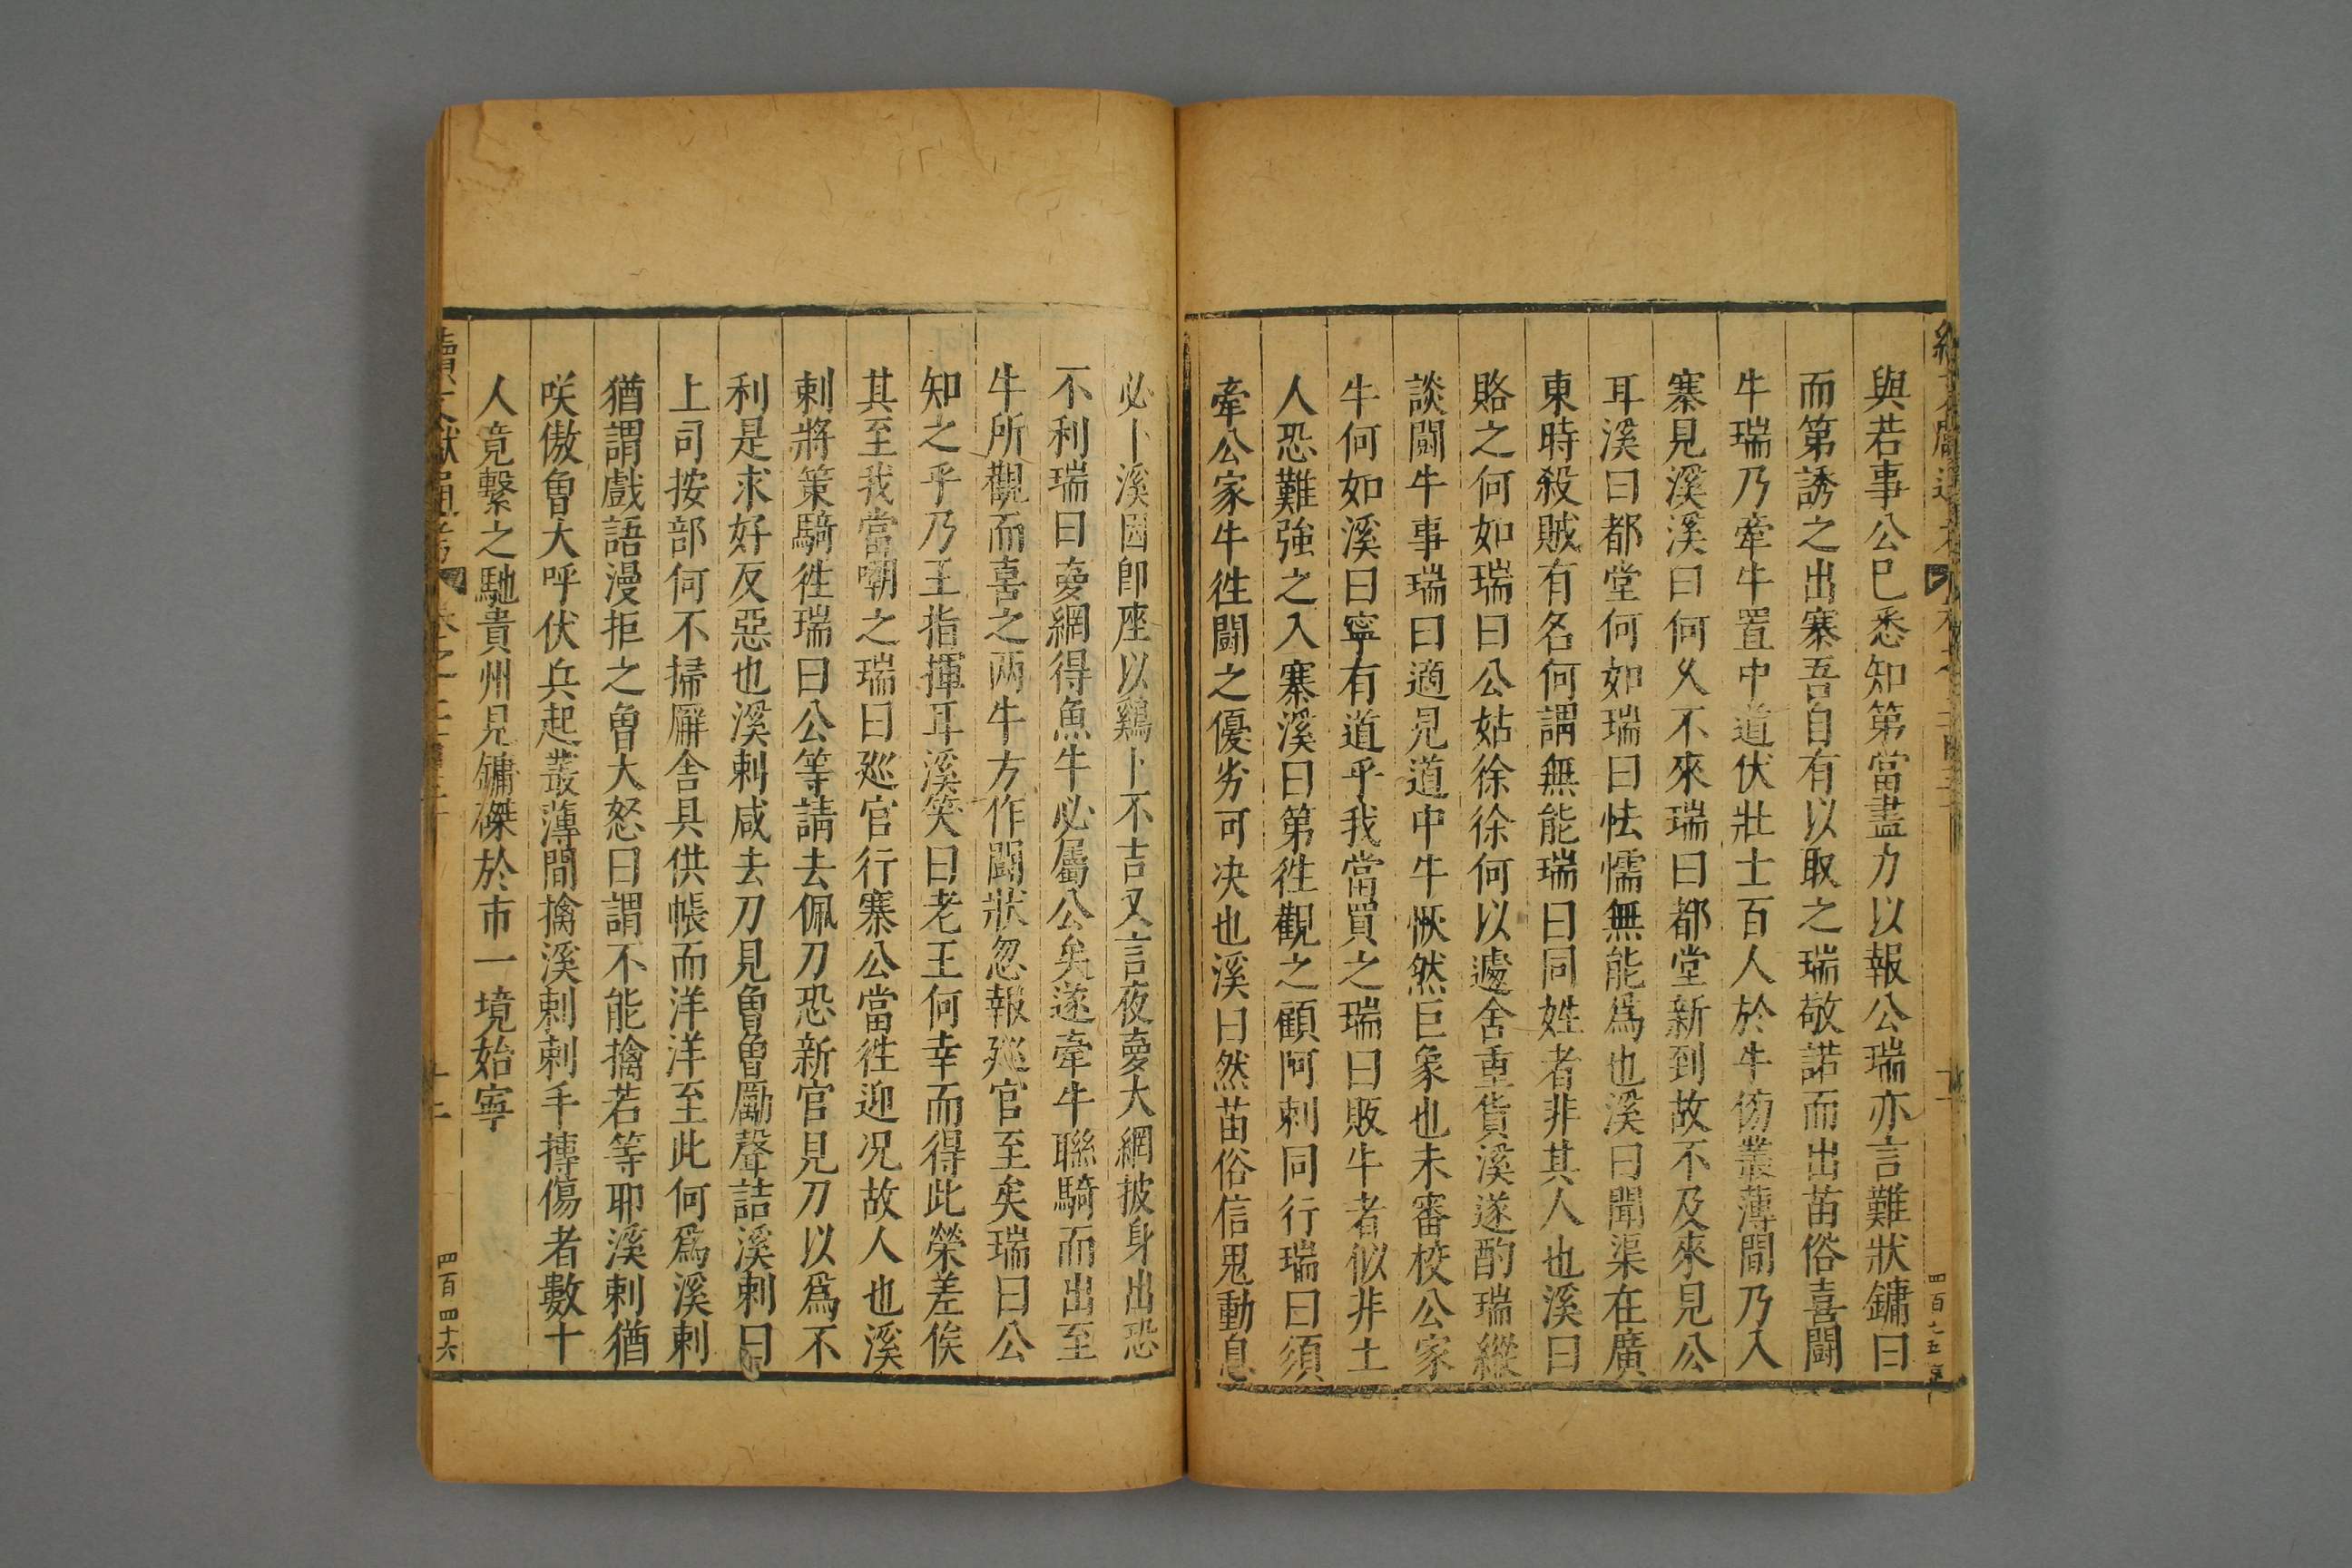 與若事公巳悉知第當盡力以報公瑞亦言難狀鏞曰
而第誘之出寨吾自有以取之瑞敬諾而出苗俗喜鬪
牛瑞乃牽牛置中道伏壯士百人於牛傍叢薄間乃入
寨見溪溪曰何久不來瑞曰都堂新到故不及來見公
耳溪曰都堂何如瑞曰怯懦無能爲也溪曰聞渠在廣
東時殺賊有名何謂無能瑞曰同姓者非其人也溪曰
賂之何如瑞曰公姑徐徐何以遽舍重貨溪遂酌瑞縱
談鬪牛事瑞曰適見道中牛恢然巨象也未審校公家
牛何如溪曰寧有道乎我當買之瑞曰販牛者似非土
人恐難強之入寨溪曰第徃觀之顧阿剌同行瑞曰須
牽公家牛徃鬪之優劣可决也溪曰然苗俗信鬼動息
必卜溪因卽座以鷄卜不吉又言夜夢大網披身出恐
不利瑞曰夢網得魚牛必屬公矣遂牽牛聯騎而出至
牛所觀而喜之两牛方作鬪狀忽報廵官至矣瑞曰公
知之乎乃王指揮耳溪笑曰老王何幸而得此榮差俟
其至我當嘲之瑞曰廵官行寨公當徃迎况故人也溪
剌將策騎徃瑞曰公等請去佩刀恐新官見刀以爲不
利是求好反惡也溪剌咸去刀見魯魯勵聲詰溪剌曰
上司按部何不掃廨舍具供帳而洋洋至此何爲溪剌
猶謂戲語漫拒之魯大怒曰謂不能擒若等耶溪剌猶
咲傲魯大呼伏兵起叢薄間擒溪剌剌手摶傷者數十
人竟繫之馳貴州見鏞磔於市一境始寧
續文獻通考
四百四十六